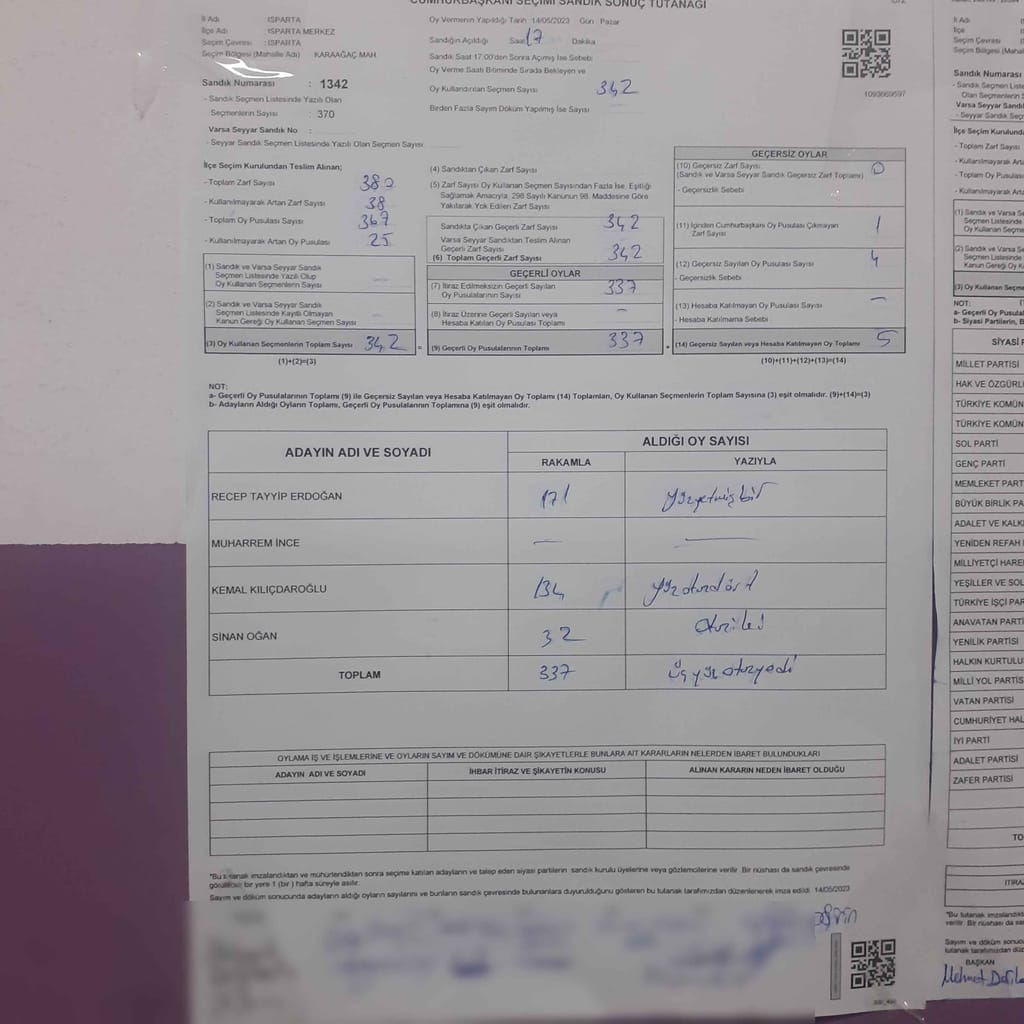 CUMHURBAŞKANI SEÇİMİ SANDIK SONUÇ TUTANAĞI
İl Adı : ISPARTA
İlçe Adı : ISPARTA MERKEZ
Seçim Çevresi : ISPARTA
Seçim Bölgesi (Mahalle Adı) KARAAĞAÇ MAH.
Sandık Numarası : 1342
- Sandık Seçmen Listesinde Yazılı Olan
Seçmenlerin Sayısı : 370
Varsa Seyyar Sandık No :
- Seyyar Sandık Seçmen Listesinde Yazılı Olan Seçmen Sayısı
Oy Vermenin Yapıldığı Tarih 14/05/2023 Gün : Pazar
Sandığın Açıldığı Saat 17 Dakika
Sandık Saat 17:00'den Sonra Açılmış İse Sebebi
Oy Verme Saati Bitiminde Sırada Bekleyen ve
Oy Kullandırılan Seçmen Sayısı 342
Birden Fazla Sayım Döküm Yapılmış İse Sayısı
1093669697
İlçe Seçim Kurulundan Teslim Alınan;
- Toplam Zarf Sayısı 380
- Kullanılmayarak Artan Zarf Sayısı 38
- Toplam Oy Pusulası Sayısı 367
- Kullanılmayarak Artan Oy Pusulası 25
(1) Sandık ve Varsa Seyyar Sandık
Seçmen Listesinde Yazılı Olup
Oy Kullanan Seçmenlerin Sayısı
(2) Sandık ve Varsa Seyyar Sandık
Seçmen Listesinde Kayıtlı Olmayan
Kanun Gereği Oy Kullanan Seçmen Sayısı
(3) Oy Kullanan Seçmenlerin Toplam Sayısı 342 =
(1)+(2)=(3)
(4) Sandıktan Çıkan Zarf Sayısı
(5) Zarf Sayısı Oy Kullanan Seçmen Sayısından Fazla İse, Eşitliği
Sağlamak Amacıyla, 298 Sayılı Kanunun 98. Maddesine Göre
Yakılarak Yok Edilen Zarf Sayısı
Sandıkta Çıkan Geçerli Zarf Sayısı 342
Varsa Seyyar Sandıktan Teslim Alınan
Geçerli Zarf Sayısı
(6) Toplam Geçerli Zarf Sayısı 342
GEÇERLİ OYLAR
(7) İtiraz Edilmeksizin Geçerli Sayılan
Oy Pusulalarının Sayısı 337
(8) İtiraz Üzerine Geçerli Sayılan veya
Hesaba Katılan Oy Pusulası Toplamı –
(9) Geçerli Oy Pusulalarının Toplamı 337 +
GEÇERSİZ OYLAR
(10) Geçersiz Zarf Sayısı 0
(Sandık ve Varsa Seyyar Sandık Geçersiz Zarf Toplamı)
- Geçersizlik Sebebi
(11) İçinden Cumhurbaşkanı Oy Pusulası Çıkmayan
Zarf Sayısı 1
(12) Geçersiz Sayılan Oy Pusulası Sayısı 4
- Geçersizlik Sebebi
(13) Hesaba Katılmayan Oy Pusulası Sayısı –
- Hesaba Katılmama Sebebi
(14) Geçersiz Sayılan veya Hesaba Katılmayan Oy Toplamı 5
(10)+(11)+(12)+(13)=(14)
NOT:
a- Geçerli Oy Pusulalarının Toplamı (9) ile Geçersiz Sayılan veya Hesaba Katılmayan Oy Toplamı (14) Toplamları, Oy Kullanan Seçmenlerin Toplam Sayısına (3) eşit olmalıdır. (9)+(14)=(3)
b- Adayların Aldığı Oyların Toplamı, Geçerli Oy Pusulalarının Toplamına (9) eşit olmalıdır.
ADAYIN ADI VE SOYADI
ALDIĞI OY SAYISI
RAKAMLA YAZIYLA
RECEP TAYYİP ERDOĞAN 171 yüzyetmişbir
MUHARREM İNCE — —
KEMAL KILIÇDAROĞLU 134 yüzotuzdört
SİNAN OĞAN 32 otuziki
TOPLAM 337 üçyüzotuzyedi
OYLAMA İŞ VE İŞLEMLERİNE VE OYLARIN SAYIM VE DÖKÜMÜNE DAİR ŞİKAYETLERLE BUNLARA AİT KARARLARIN NELERDEN İBARET BULUNDUKLARI
ADAYIN ADI VE SOYADI İHBAR İTİRAZ VE ŞİKAYETİN KONUSU ALINAN KARARIN NEDEN İBARET OLDUĞU
"Bu tutanak imzalandıktan ve mühürlendikten sonra seçime katılan adayların ve talep eden siyasi partilerin sandık kurulu üyelerine veya gözlemcilerine verilir. Bir nüshası da sandık çevresinde
görülebilir bir yere 1 (bir) hafta süreyle asılır.
Sayım ve döküm sonucunda adayların aldığı oyların sayılarını ve bunların sandık çevresinde bulunanlara duyurulduğunu gösteren bu tutanak tarafımızdan düzenlenerek imza edildi. 14/05/2023
İl Adı
İlçe
Seçim Çevresi
Seçim Bölgesi (Ma
Sandık Numarası
- Sandık Seçmen Liste
Olan Seçmenlerin Say
Varsa Seyyar Sandık
- Seyyar Sandık Seçm
İlçe Seçim Kurulund
- Toplam Zarf Sayısı
- Kullanılmayarak Artan
- Toplam Oy Pusulası
- Kullanılmayarak Artan
(1) Sandık ve Varsa Se
Seçmen Listesinde
Oy Kullanan Seçme
(2) Sandık ve Varsa S
Seçmen Listesinde
Kanun Gereği Oy K
(3) Oy Kullanan Seçme
NOT:
a- Geçerli Oy Pusula
b- Siyasi Partilerin, B
SİYASİ P
MİLLET PARTİSİ
HAK VE ÖZGÜRL
TÜRKİYE KOMÜN
TÜRKİYE KOMÜN
SOL PARTİ
GENÇ PARTİ
MEMLEKET PART
BÜYÜK BİRLİK PA
ADALET VE KALK
YENİDEN REFAH
MİLLİYETÇİ HARE
YEŞİLLER VE SOL
TÜRKİYE İŞÇİ PAR
ANAVATAN PARTİ
YENİLİK PARTİSİ
HALKIN KURTULU
MİLLİ YOL PARTİS
VATAN PARTİSİ
CUMHURİYET HAL
İYİ PARTİ
ADALET PARTİSİ
ZAFER PARTİSİ
TO
İTİRAZ
"Bu tutanak imzalandık
verilir. Bir nüshası da sa
Sayım ve döküm sonuc
tutanak tarafımızdan dü
BAŞKAN
Mehmet